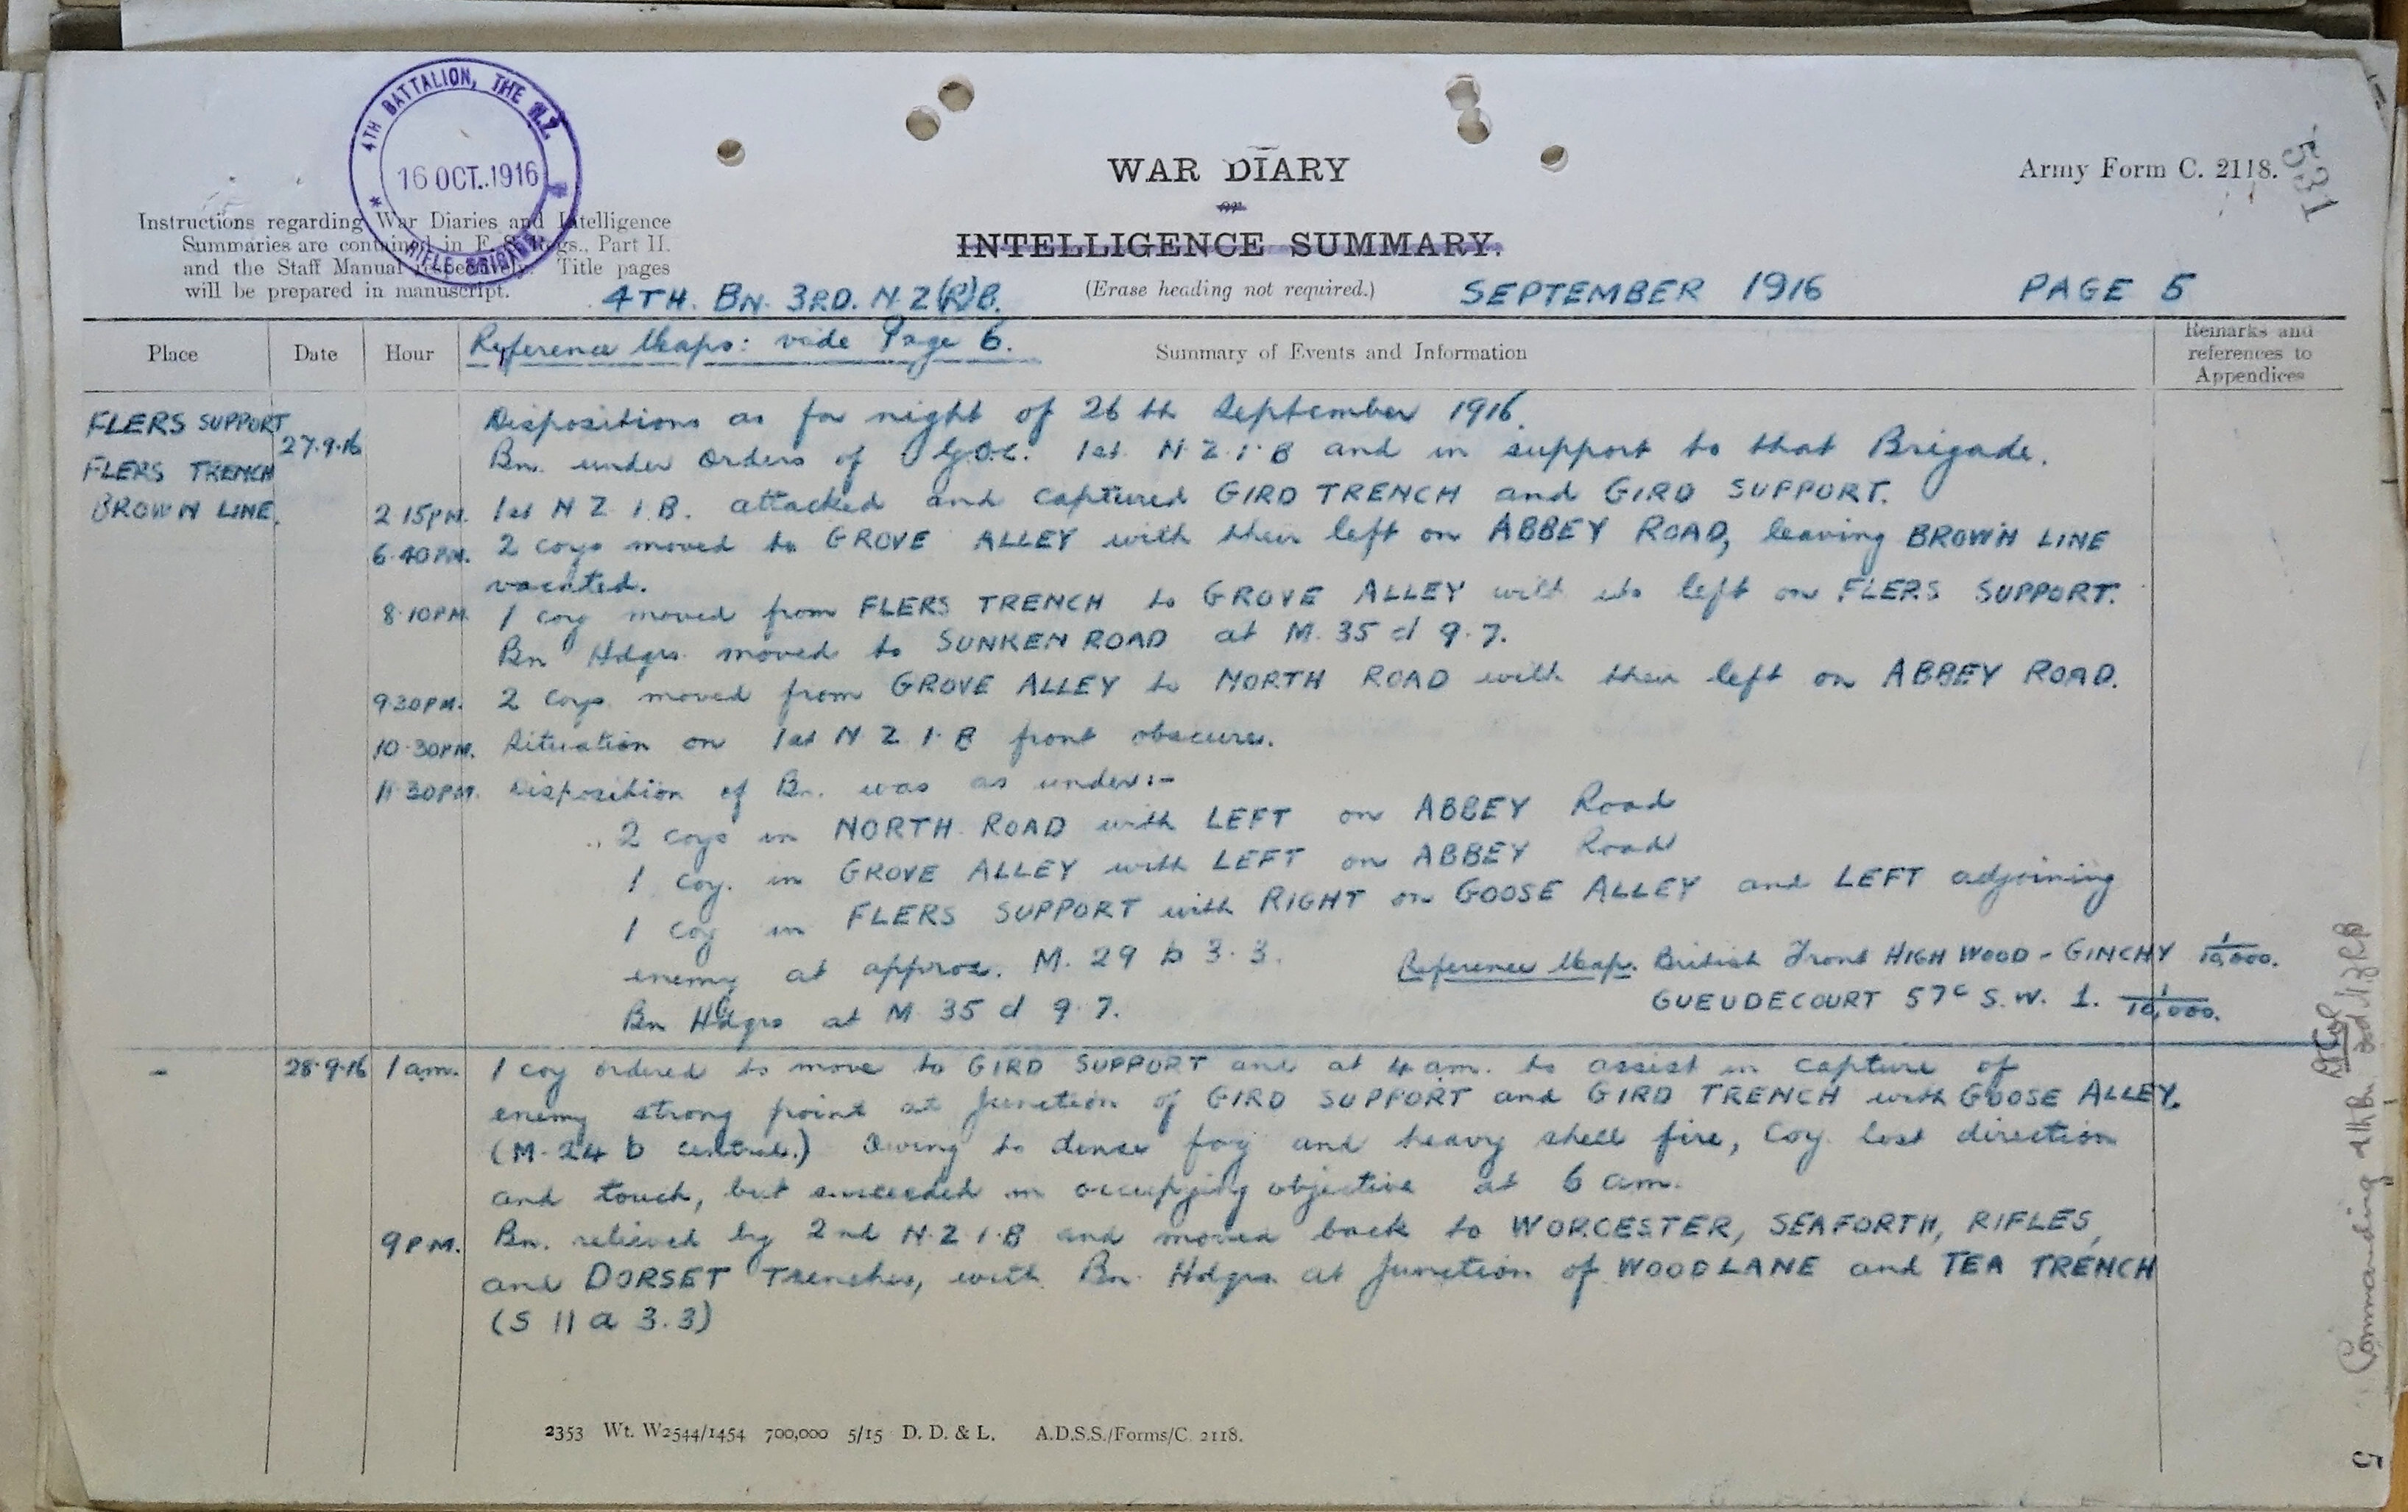 4TH BATTALION, THE N.Z.
16 OCT. 1916
RIFLE BRIGADE
WAR DIARY
or
INTELLIGENCE SUMMARY.
(Erase heading not required.)
Army Form C. 2118.
531
Instructions regarding War Diaries and Intelligence
Summaries are contained in F. S. Regs., Part II.
and the Staff Manual respectively. Title pages
will be prepared in manuscript.
4TH. BN. 3RD. N.Z.(R)B.
SEPTEMBER 1916
PAGE 5
Place
Date
Hour
Reference Maps: vide Page 6.
Summary of Events and Information
Remarks and
references to
Appendices
FLERS SUPPORT
FLERS TRENCH
BROWN LINE.
27.9.16
Dispositions as for night of 26th September 1916.
Bn. under orders of G.O.C. 1st. N.Z.I.B and in support to that Brigade.
2.15PM. 1st N Z I.B. attacked and captured GIRD TRENCH and GIRD SUPPORT.
6.40PM. 2 coys moved to GROVE ALLEY with their left on ABBEY ROAD, leaving BROWN LINE
vacated.
8.10PM. 1 coy moved from FLERS TRENCH to GROVE ALLEY with its left on FLERS SUPPORT.
Bn Hdqrs. moved to SUNKEN ROAD at M. 35 d 9.7.
9.30PM. 2 coys. moved from GROVE ALLEY to NORTH ROAD with their left on ABBEY ROAD.
10.30PM. Situation on 1st N Z I.B front obscure.
11.30PM. Disposition of Bn. was as under:-
2 coys in NORTH ROAD with LEFT on ABBEY Road
1 coy. in GROVE ALLEY with LEFT on ABBEY Road
1 coy in FLERS SUPPORT with RIGHT on GOOSE ALLEY and LEFT adjoining
enemy at approx. M. 29 b 3.3.
Bn Hdqrs at M 35 d 9.7.
Reference Map. British Front HIGH WOOD - GINCHY 1/10,000.
GUEUDECOURT 57c S.W. 1. 1/10,000.
- 28.9.16 1 am. 1 coy ordered to move to GIRD SUPPORT and at 4 am. to assist in capture of
enemy strong point at junction of GIRD SUPPORT and GIRD TRENCH with GOOSE ALLEY.
(M.24 b central.) Owing to dense fog and heavy shell fire, Coy. lost direction
and touch, but succeeded in occupying objective at 6 am.
9PM. Bn. relieved by 2nd N.Z.I.B and moved back to WORCESTER, SEAFORTH, RIFLES,
and DORSET Trenches, with Bn. Hdqrs. at junction of WOODLANE and TEA TRENCH
(S 11 a 3.3)
Commanding 4th Bn.
5
2353 Wt. W2544/1454 700,000 5/15 D. D. & L. A.D.S.S./Forms/C. 2118.